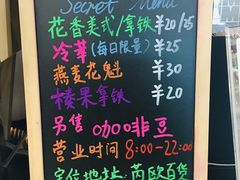 Secret Menu
花香美式/拿铁 ¥20/25
冷萃(每日限量) ¥25
燕麦花魁 ¥30
榛果拿铁 ¥20
另售 咖啡豆
营业时间 8:00-22:00
定位地址: 芮欧百货